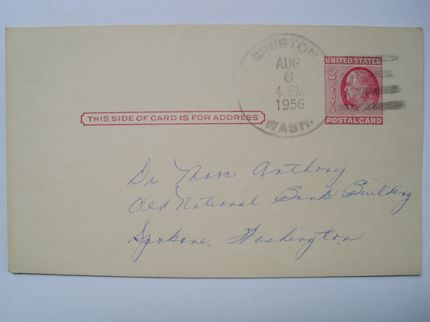 CRESTON
AUG
6
4 PM
1956
WASH.
UNITED STATES
2 CENTS
POSTAL CARD
THIS SIDE OF CARD IS FOR ADDRESS
Dr. Ross Anthony
Old National Bank Building
Spokane, Washington